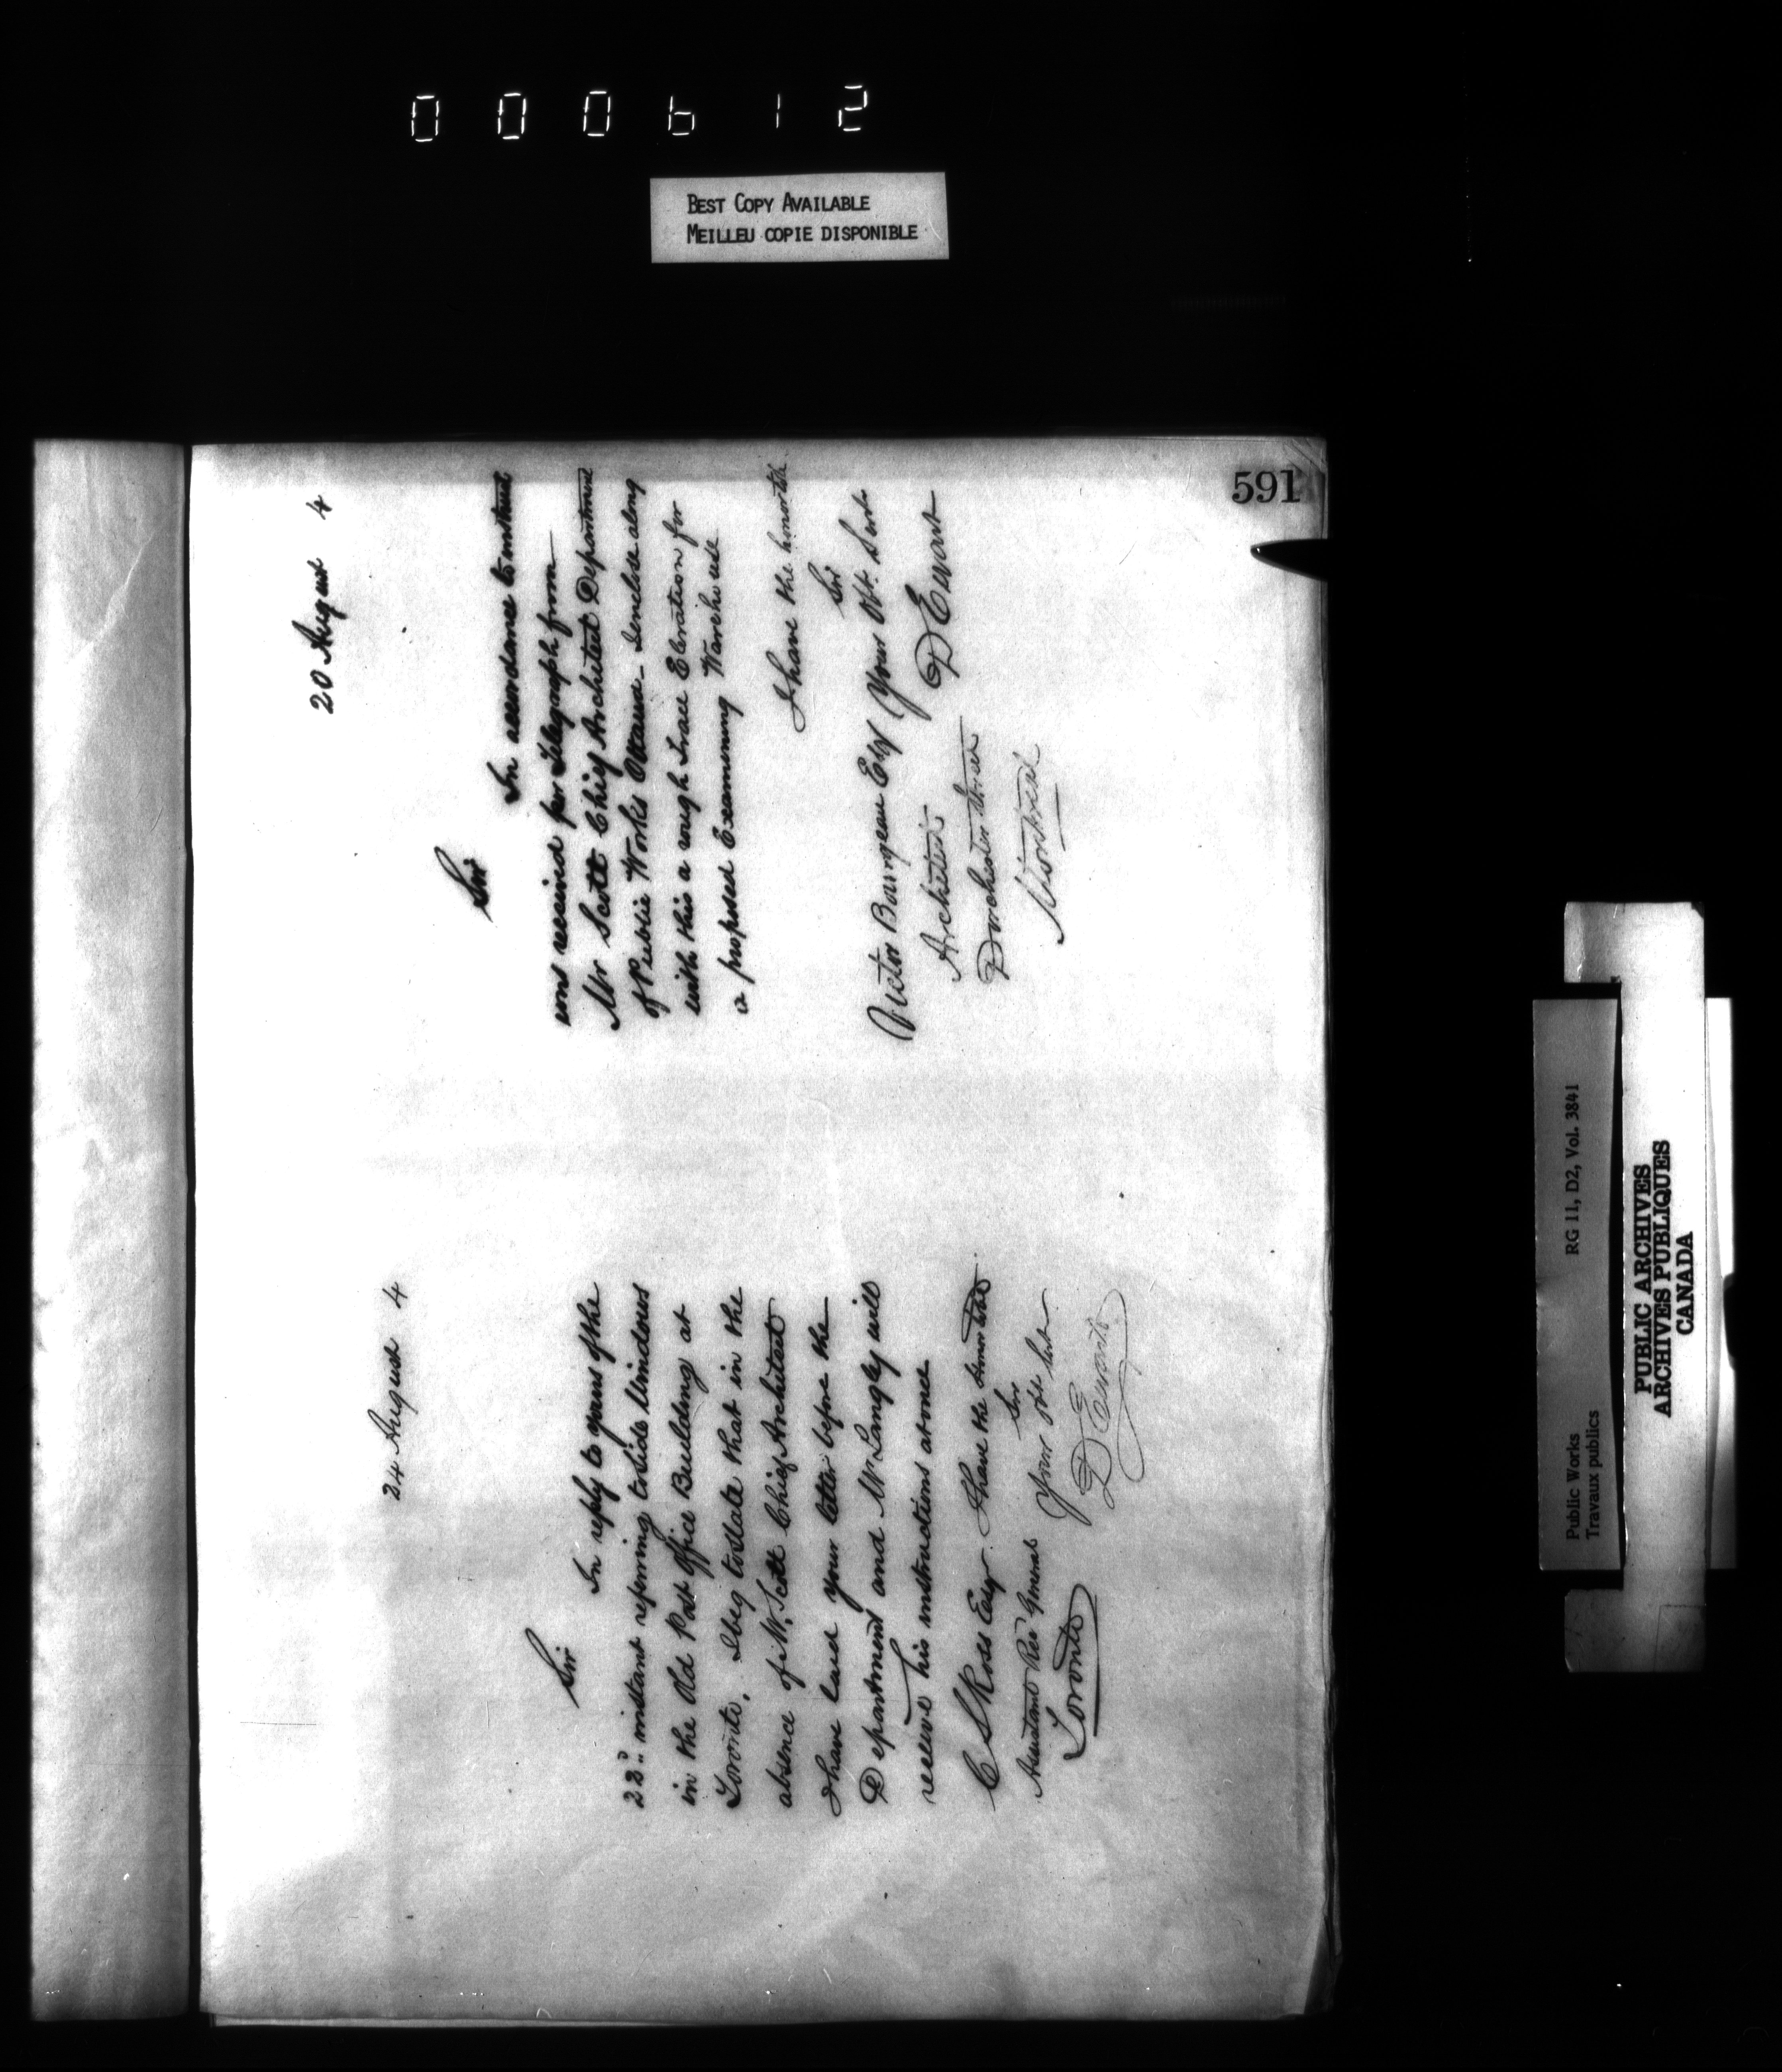 000612
BEST COPY AVAILABLE
MEILLEU COPIE DISPONIBLE
591
24 August 4
Sir
In reply to yours of the
22nd instant referring to side windows
in the Old Post Office Building at
Toronto. I beg to state that in the
absence of Mr Scott Chief Architect
I have laid your letter before the
Department and Mr Langley will
receive his instructions at once
I have the honor to be
Sir
Your Obt Servt
D Ewart
C S Ross Esqr
Assistant Rec General
Toronto
20 August 4
Sir
In accordance to instruct
ions received per Telegraph from
Mr Scott Chief Architect Department
of Public Works Ottawa - I enclose along
with this a rough Trace Elevation for
a proposed Examining Warehouse
I have the honor to be
Sir
Your Obt. Servt
D Ewart
Victor Bourgeau Esq
Architect
Dorchester Street
Montreal
Public Works RG 11, D2, Vol. 3841
Travaux publics
PUBLIC ARCHIVES
ARCHIVES PUBLIQUES
CANADA